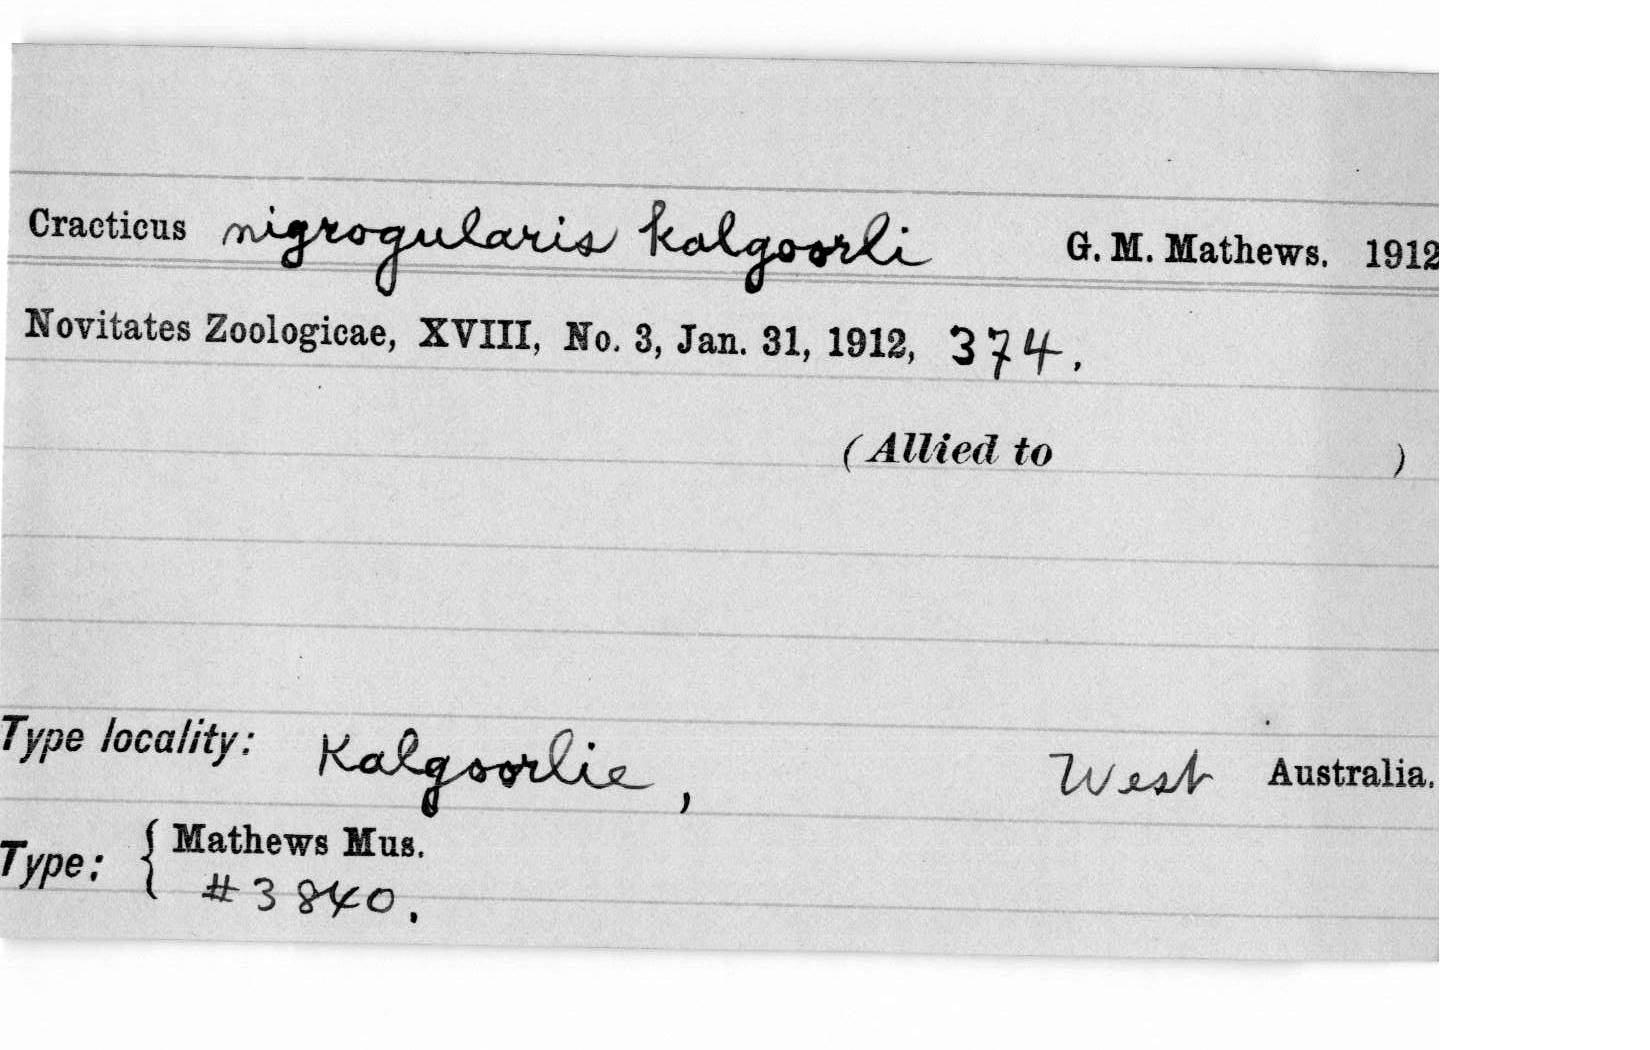 Cracticus nigrogularis kalgoorli G. M. Mathews. 1912
Novitates Zoologicae, XVIII, No. 3, Jan. 31, 1912, 374.
(Allied to )
Type locality: Kalgoorlie, West Australia.
Type: { Mathews Mus.
#3840.